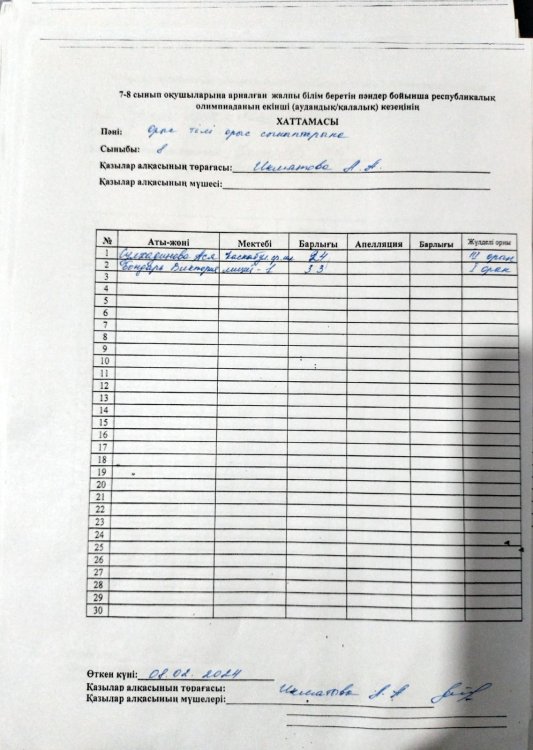 7-8 сынып оқушыларына арналған жалпы білім беретін пәндер бойынша республикалық
олимпиаданың екінші (аудандық/қалалық) кезеңінің
ХАТТАМАСЫ
Пәні: орыс тілі орыс сыныптарына
Сыныбы: 8
Қазылар алқасының төрағасы: Икматова А. А.
Қазылар алқасының мүшесі:
№ Аты-жөні Мектебі Барлығы Апелляция Барлығы Жүлделі орны
1 Ася 24 орын
2 Бондарь Виктория лицей-1 33 I орын
3
4
5
6
7
8
9
10
11
12
13
14
15
16
17
18
19
20
21
22
23
24
25
26
27
28
29
30
Өткен күні: 08.02.2024
Қазылар алқасының төрағасы: Икматова А. А
Қазылар алқасының мүшелері: